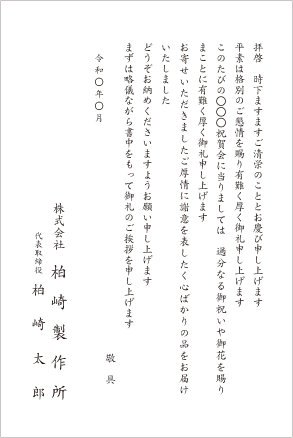 拝啓　時下ますますご清栄のこととお慶び申し上げます
平素は格別のご懇情を賜り有難く厚く御礼申し上げます
このたびの〇〇〇祝賀会に当りましては　過分なる御祝いや御花を賜り
まことに有難く厚く御礼申し上げます
お寄せいただきましたご厚情に謝意を表したく心ばかりの品をお届け
いたしました
どうぞお納めくださいますようお願い申し上げます
まずは略儀ながら書中をもって御礼のご挨拶を申し上げます
敬具
令和〇年〇月
株式会社　柏崎製作所
代表取締役　柏崎太郎